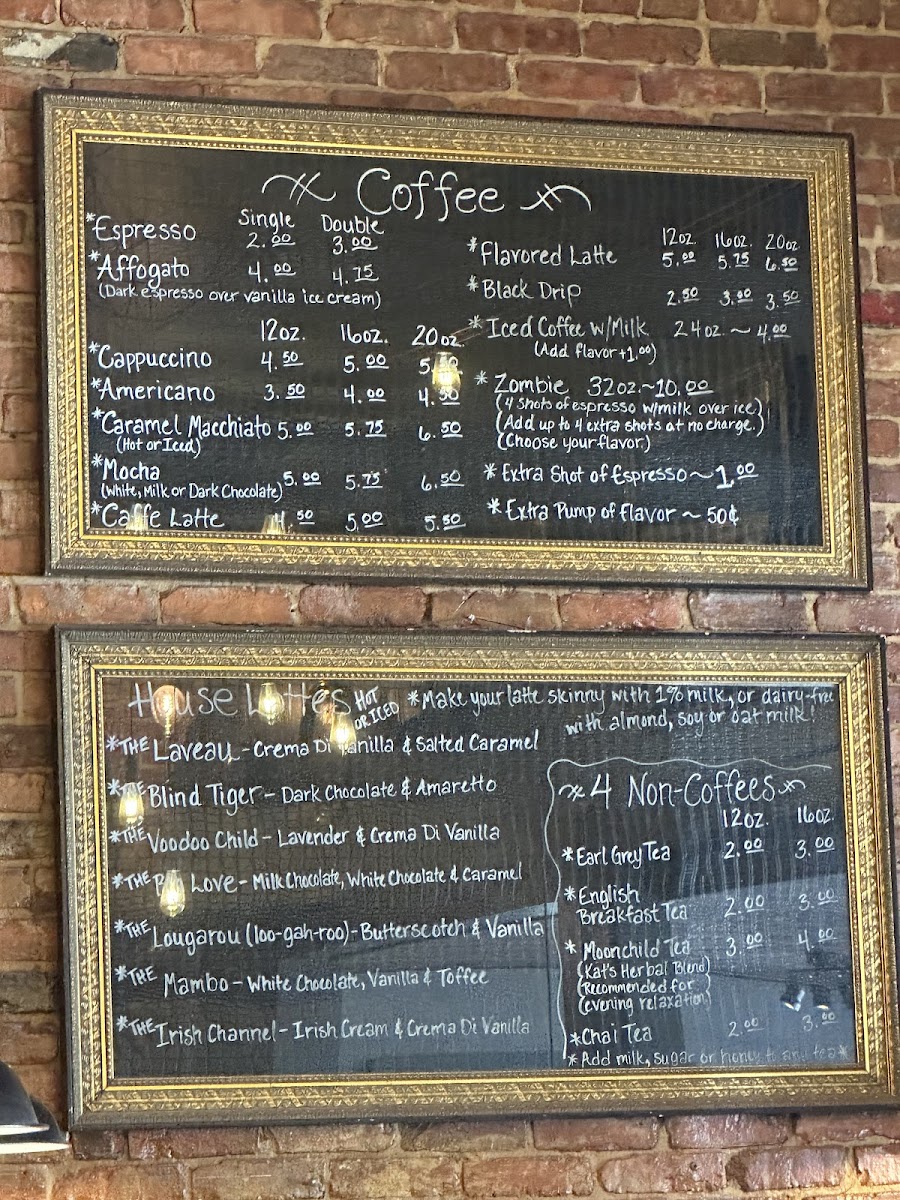 Coffee
Single Double
*Espresso 2.00 3.00
*Affogato 4.00 4.75
(Dark espresso over vanilla ice cream)
12oz. 16oz. 20oz.
*Cappuccino 4.50 5.00
*Americano 3.50 4.00 4.50
*Caramel Macchiato 5.00 5.75 6.50
(Hot or Iced)
*Mocha 5.00 5.75 6.50
(White, Milk or Dark Chocolate)
*Caffe Latte 4.50 5.00 5.50
12oz. 16oz. 20oz
*Flavored Latte 5.00 5.75 6.50
*Black Drip 2.50 3.00 3.50
*Iced Coffee w/Milk 24oz. ~ 4.00
(Add flavor +1.00)
*Zombie 32oz.~10.00
(4 Shots of espresso w/milk over ice)
(Add up to 4 extra shots at no charge.)
(Choose your flavor)
*Extra Shot of Espresso ~ 1.00
*Extra Pump of flavor ~ 50¢
House Lattes HOT
OR ICED
*Make your latte skinny with 1% milk, or dairy-free
with almond, soy or oat milk!
*THE Laveau - Crema Di Vanilla & Salted Caramel
*THE Blind Tiger - Dark Chocolate & Amaretto
*THE Voodoo Child - Lavender & Crema Di Vanilla
*THE Love - Milk Chocolate, White Chocolate & Caramel
*THE Lougarou (loo-gah-roo) - Butterscotch & Vanilla
*THE Mambo - White Chocolate, Vanilla & Toffee
*THE Irish Channel - Irish Cream & Crema Di Vanilla
4 Non-Coffees
12oz. 16oz.
*Earl Grey Tea 2.00 3.00
*English
Breakfast Tea 2.00 3.00
*Moonchild Tea 3.00 4.00
(Kat's Herbal Blend)
(Recommended for
(evening relaxation)
*Chai Tea 2.00 3.00
*Add milk, sugar or honey to any tea*